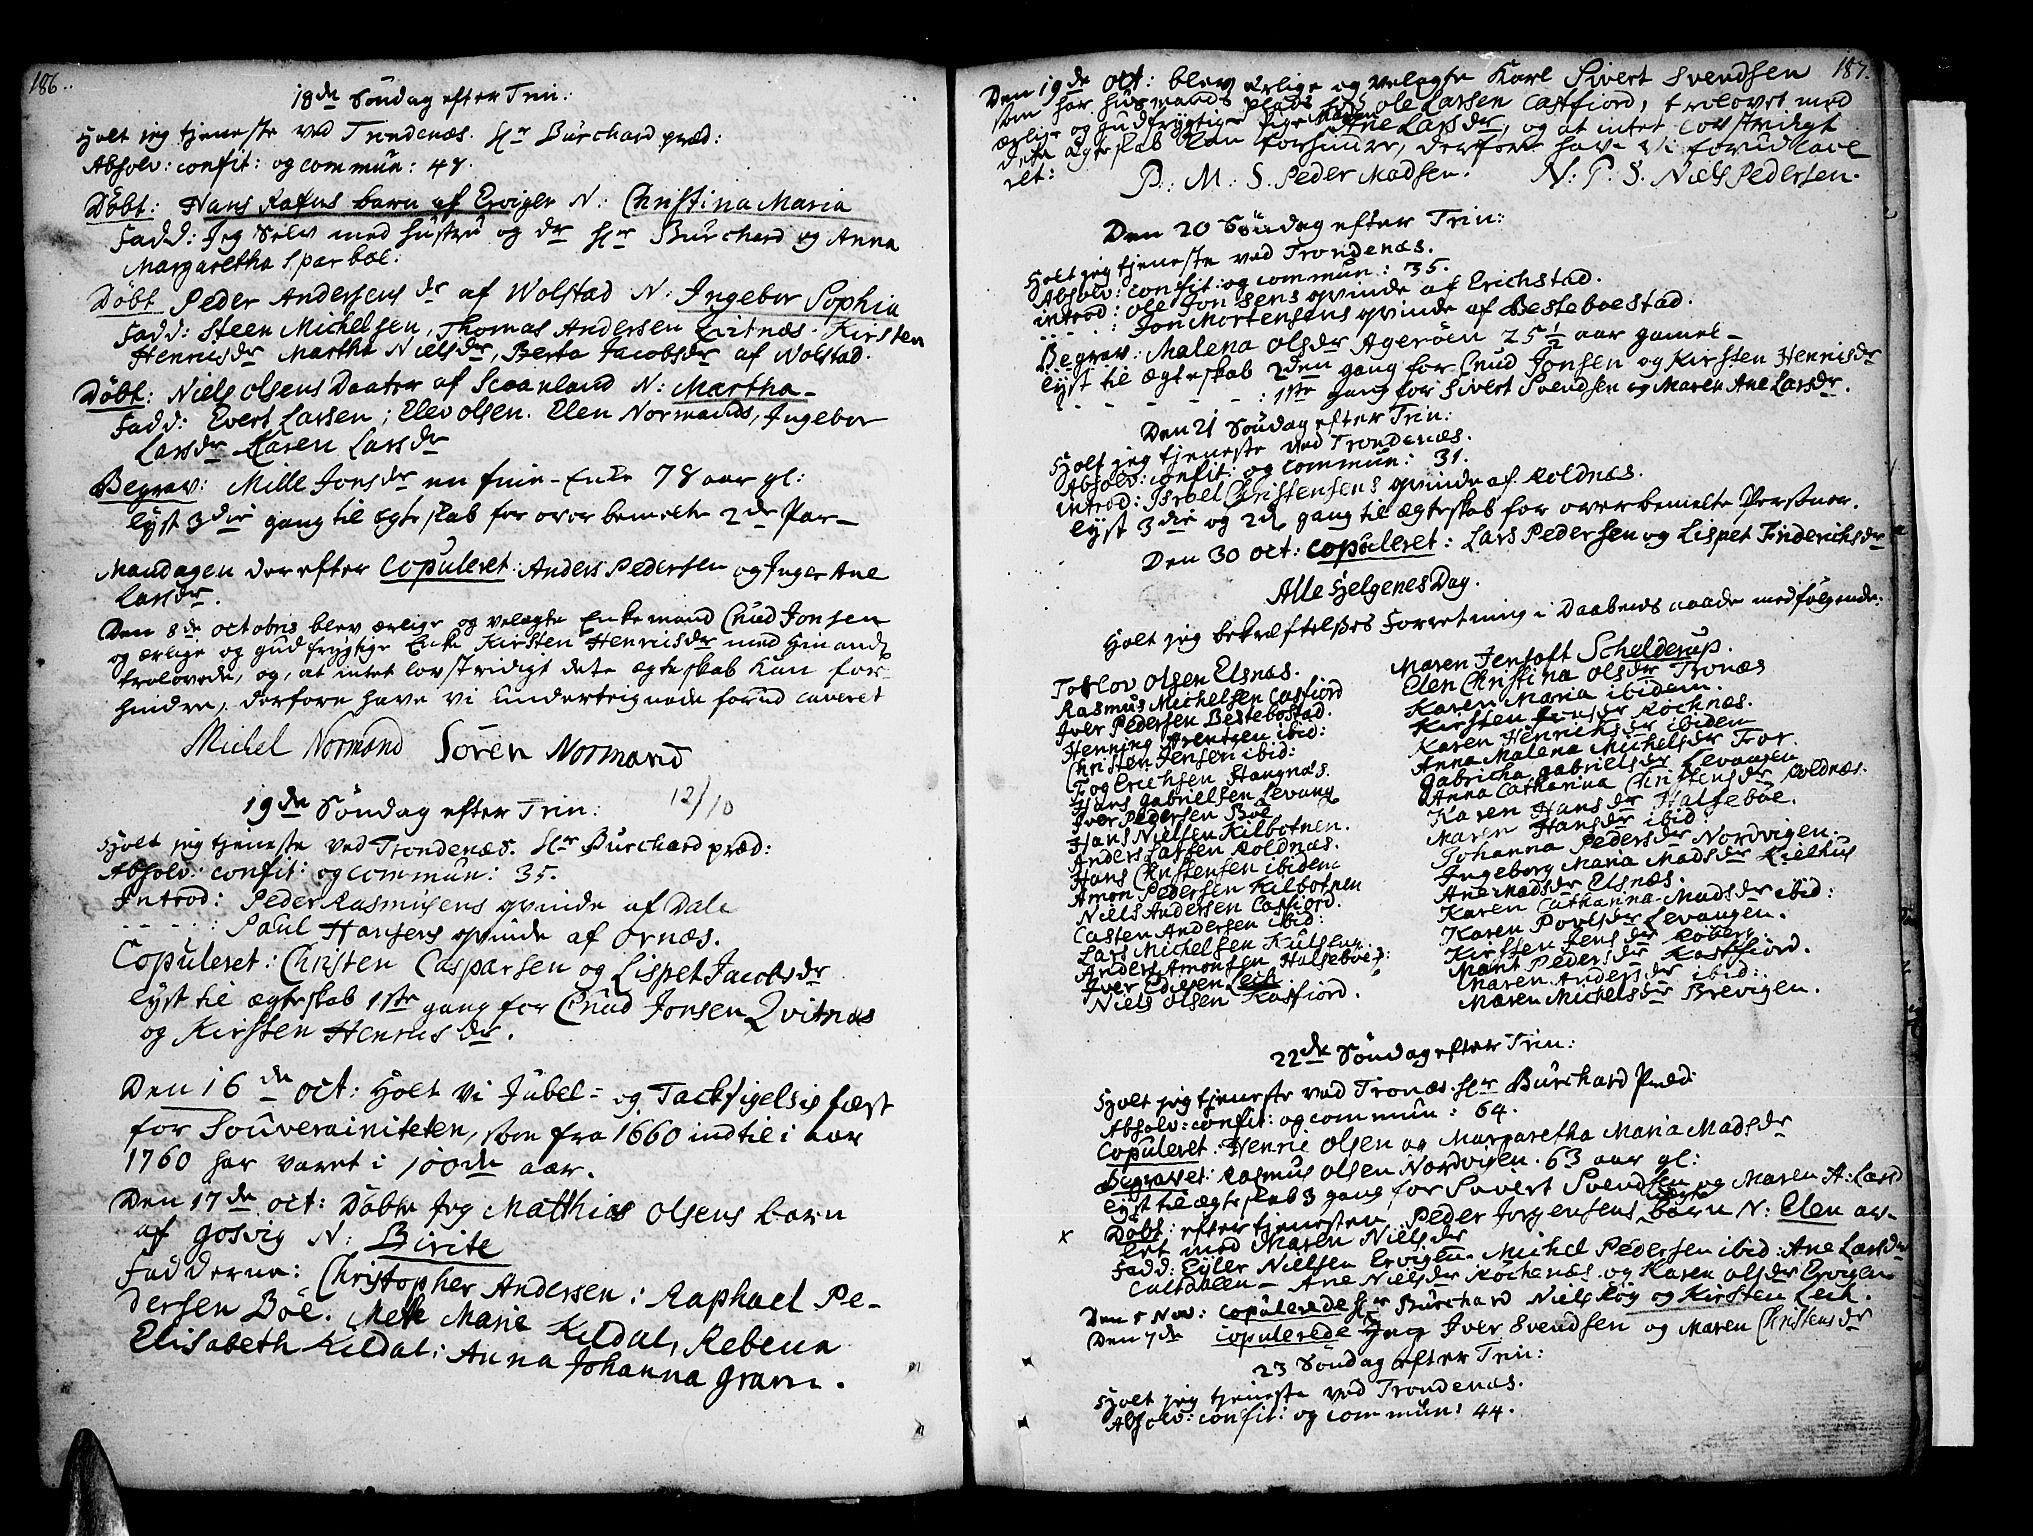 186.
18de Søndag efter Trin:
Holt jeg tjeneste ved Trondenæs. Hr Burchard præd:
Absolv: confit: og commun: 48.
Døbt: Hans Rafns barn af Ervigen N: Christina Maria
Fadd: Jeg Selv med hustru og dr Hr Burchard og Anna
Margaretha Sparboe:
Døbt Peder Andersens dr af Wolstad N: Ingebor Sophia
Fadd: Steen Michelsen, Thomas Andersen Qvitnæs. Kirsten
Henrisdr Martha Nielsdr, Berta Jacobsdr af Wolstad.
Døbt: Niels Olsens Daater af Scaanland N: Martha
Fadd: Evert Larsen; Elev Olsen. Elen Normands, Ingebor
Larsdr Karen Larsdr
Begrav: Mille Jonsdr en Enke 78 aar gl:
lyst 3die gang til egteskab for over bemelte 2de Par
Mandagen derefter Copuleret Anders Pedersen og Inger Ane
Larsdr.
Den 8de octobris blev ærlige og velagte Enkemand Cnud Jonsen
og ærlige og gudfrygtige Enke Kirsten Henrisdr med hinand:
trolovede, og, at intet lovstridigt dete egteskab kan for-
hindre, derfore have vi undertegnede forud caveret
Michel Normand Søren Normand
19de Søndag efter Trin: 12/10
Holt jeg tjeneste ved Trondenæs. Hr Burchard præd:
Absolv: confit: og commun: 35.
Introd: Peder Rasmusens qvinde af Dale
- - - - : Paul Hansens qvinde af Ornæs.
Copuleret: Christen Caspersen og Lispet Jacobsdr
lyst til ægteskab 1ste gang for Cnud Jonsen Qvitnæs
og Kirsten Henrisdr.
Den 16de oct: Holt vi Jubel- og Tacksigelsis fæst
for Souverainiteten, som fra 1660 indtil i aar
1760 har varet i 100de aar.
Den 17de oct: Døbte Jeg Matthias Olsens barn
af Gosvig N: Birite
Fadderne: Christopher Andersen; Raphael Pe-
dersen Böe. Mette Marie Kildal, Rebecca
Elisabeth Kildal; Anna Johanna Gram.
187.
Den 19de Oct: blev ærlige og velagte Karl Sivert Svendsen
som har husmands plads hos Ole Larsen Casfiord, trolovet med
ærlige og gudfrygtige Pige Maren Ane Larsdr, og at intet lovstridigt
dete ægteskab kan forhindre, derfore have vi forud cave
ret: P: M: S. Peder Madsen. N: P: S. Niels Pedersen.
Den 20 Søndag efter Trin:
Holt jeg tjeneste ved Trondenæs.
Absolv: confit: og commun: 35.
introd: Ole Jonsens qvinde af Erichstad.
- - - - : Jon Mortensens qvinde af Besteboestad.
Begrav: Malena Olsdr Agerøen 25½ aar gamel
lyst til ægteskab 2den gang for Cnud Jonsen og Kirsten Henrisdr
- - - - : 1ste gang for Sivert Svendsen og Maren Ane Larsdr.
Den 21 Søndag efter Trin:
Holt jeg tjeneste ved Trondenæs.
Absolv: confit: og commun: 31.
introd: Israel Christensens qvinde af Roldnæs.
lyst 3die og 2de gang til ægteskab for overbemelte Personer.
Den 30 oct: copuleret: Lars Pedersen og Lispet Friderichsdr
Alle Helgenes Dag.
Holt jeg bekræftelses Forretning i Daabens naade med følgende:
Tollov Olsen Elsnæs.
Rasmus Michelsen Casfiord
Iver Pedersen Bestebostad.
Henning Arentsen ibid:
Christen Jensen ibid:
Fog Erichsen Stangnæs.
Hans Gabrielsen Levang
Iver Pedersen Böe
Hans Nielsen Kilbotnen.
Anders Larsen Roldnæs.
Hans Christensen ibidem
Amon Pedersen Kilbotnen
Niels Andersen Casfiord.
Casten Andersen ibid:
Lars Michelsen Kulseng.
Anders Amonsen Halseböe:
Iver Edisen Leich
Niels Olsen Kasfiord.
Maren Jentoft Schelderup.
Elen Christina Olsdr Tronæs
Karen Maria ibidem.
Kirsten Jensdr Röchnæs.
Karen Henrichsdr ibidem
Anna Malena Michelsdr Tror.
Gabricha Gabrielsdr Levangen
Anna Catharina Christensdr Roldnæs.
Karen Hansdr Halseböe.
Maren Hansdr ibid:
Johanna Pedersdr Nordvigen.
Ingeborg Maria Madsdr Kielhus
Ane Madsdr Elsnæs.
Karen Catharina Madsdr ibid:
Karen Povelsdr Levangen.
Kirsten Jensdr Röberg.
Marit Pedersdr Kasfiord.
Maren Andersdr ibid:
Maren Michelsdr Brevigen.
22de Søndag efter Trin:
Holt jeg tjeneste ved Tronæs. Hr Burchard Præd:
Absolv: confit: og commun: 64.
Copuleret: Henric Olsen og Margaretha Maria Madsdr
Begravet: Rasmus Olsen Nordvigen. 63 aar gl:
lyst til ægteskab 3 gang for Sivert Svendsen og Maren A: Larsd
x Døbt: efter tjenesten Peder Jørgensens uægte barn N: Elen av-
let med Maren Nielsdr
Fadd: Eyler Nielsen Ervigen. Michel Pedersen ibid: Ane Larsdr
Ane Nielsdr Röchenæs og Karen Olsdr Ervigen
Den 5 Nov: copulerede Hr Burchard Niels Röy og Kirsten Leich.
Den 7de copulerede Jeg Iver Svendsen og Maren Christensdr
23 Søndag efter Trin:
Holt jeg tjeneste ved Trondenæs.
Absolv: confit: og commun: 44.